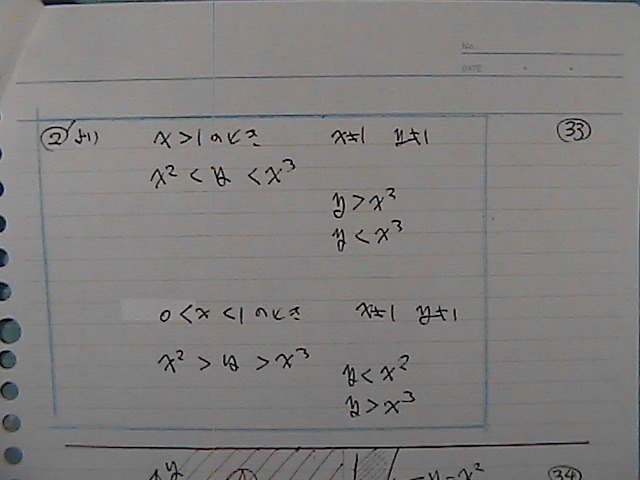 No.
DATE
②'より x>1のとき x≠1 y≠1 ㉝
x²<y<x³
y>x²
y<x³
0<x<1のとき x≠1 y≠1
x²>y>x³
y<x²
y>x³
y y=x² ㉞